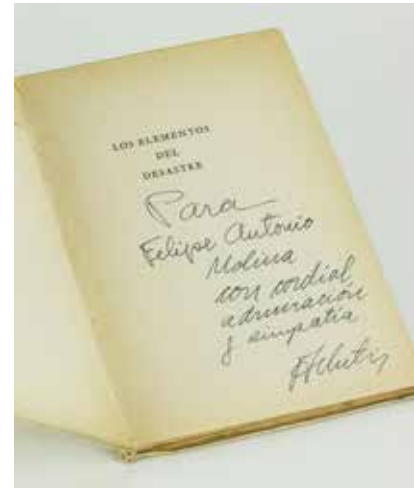 LOS ELEMENTOS
DEL
DESASTRE
Para
Felipe Antonio
Molina
con cordial
admiración
y simpatía